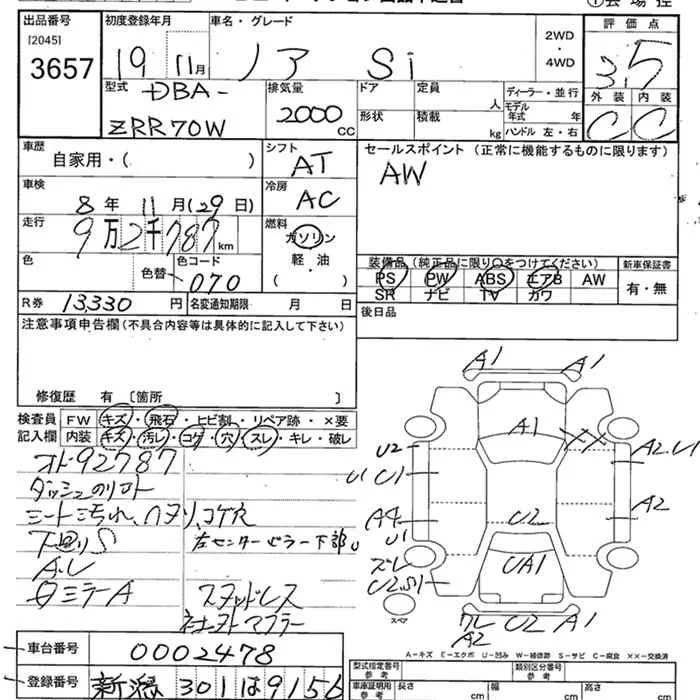 出品番号 初度登録年月 車名・グレード 評価点
[2045]
3657
19 11月 ノア Si 2WD・4WD 3.5
型式 DBA-
ZRR70W
排気量 2000 CC
ドア 定員 人
形状 積載 kg
ディーラー・並行
モデル年式 年
ハンドル 左・右
外装 内装
C C
車歴 自家用・( )
シフト AT
セールスポイント (正常に機能するものに限ります)
AW
車検 8年 11月(29日)
冷房 AC
走行 9万2千787km
燃料 ガソリン
軽・油
( )
色 色替 カラーコード 070
装備品 (純正品に限り○をつけてください) 新車保証書
PS PW ABS エアB AW 有・無
SR ナビ TV カワ
R券 13,330円 名変通知期限 月 日
後日品
注意事項申告欄(不具合内容等は具体的に記入して下さい)
修復歴 有 [箇所 ]
検査員記入欄
FW キズ・飛石・ヒビ割・リペア跡・×要
内装 キズ・汚レ・コゲ・穴・スレ・キレ・破レ
92787
シート汚れ
下廻りS
左センターピラー下部
スタッドレス
社外マフラー
A1 A1
A1 XX
U2 A2.U1
U1 U1
A4 U2 A2
U1
UA1
ズレ
U2.S1
スペア
ワレ U2 A1
A2
A-キズ E-エクボ U-凹み W-補修跡 S-サビ C-腐食 ××-交換済
車台番号 0002478
登録番号 新潟 301 は 9156
型式指定番号 参考 類別区分番号 参考
車庫証明用 参考 長さ cm 幅 cm 高さ cm